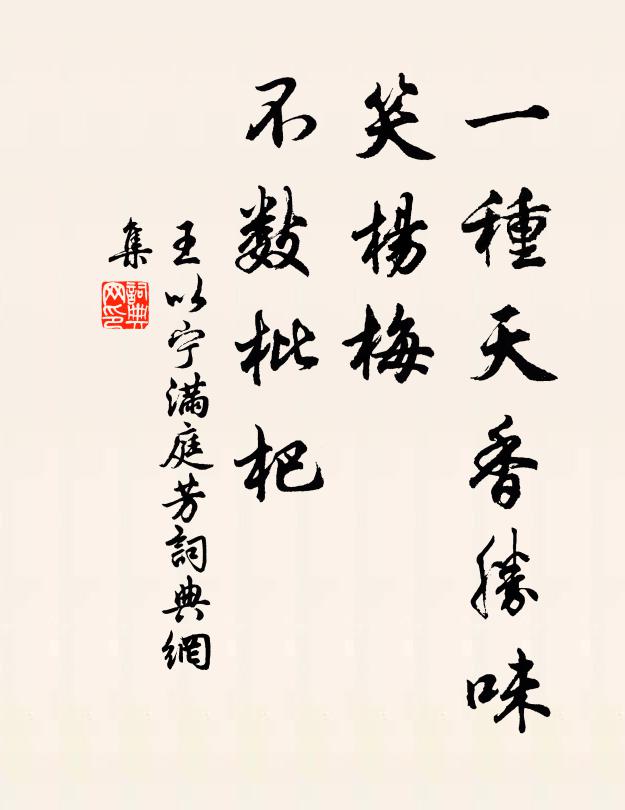 一種天香勝味
笑楊梅
不數枇杷
王以宁滿庭芳詞典網
集
詞典
网印